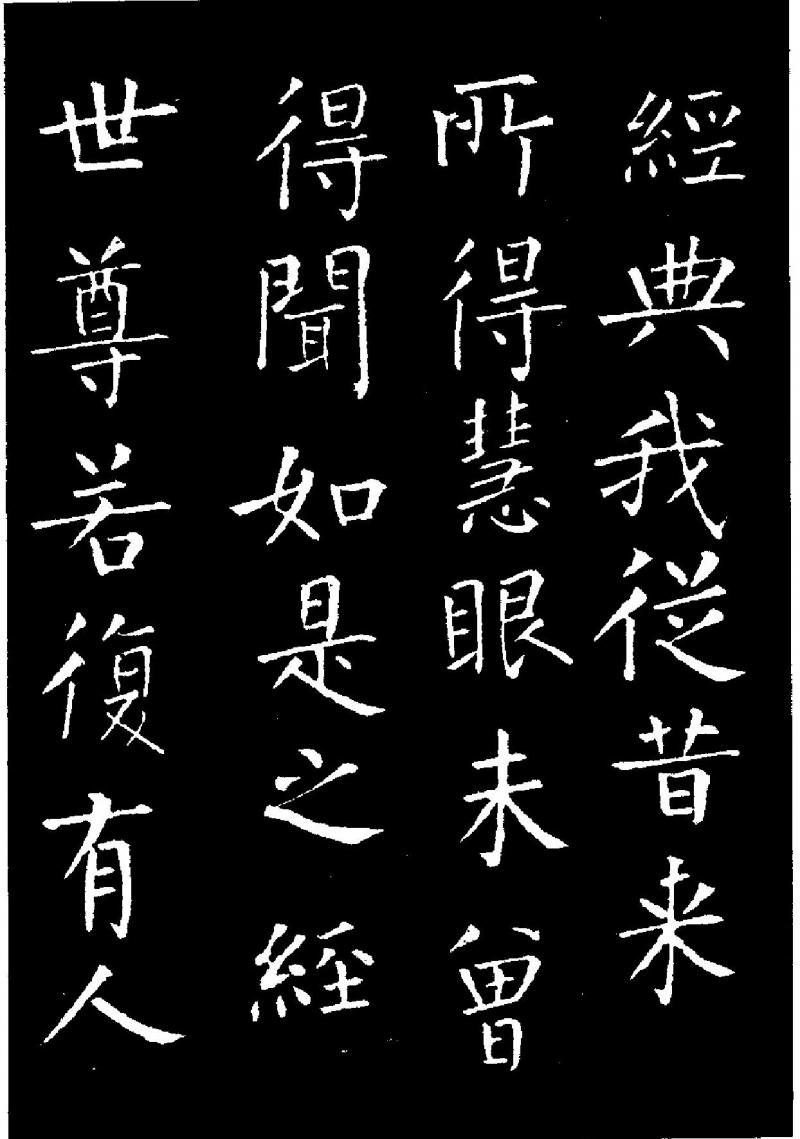 經典我從昔来
所得慧眼未曾
得聞如是之經
世尊若復有人